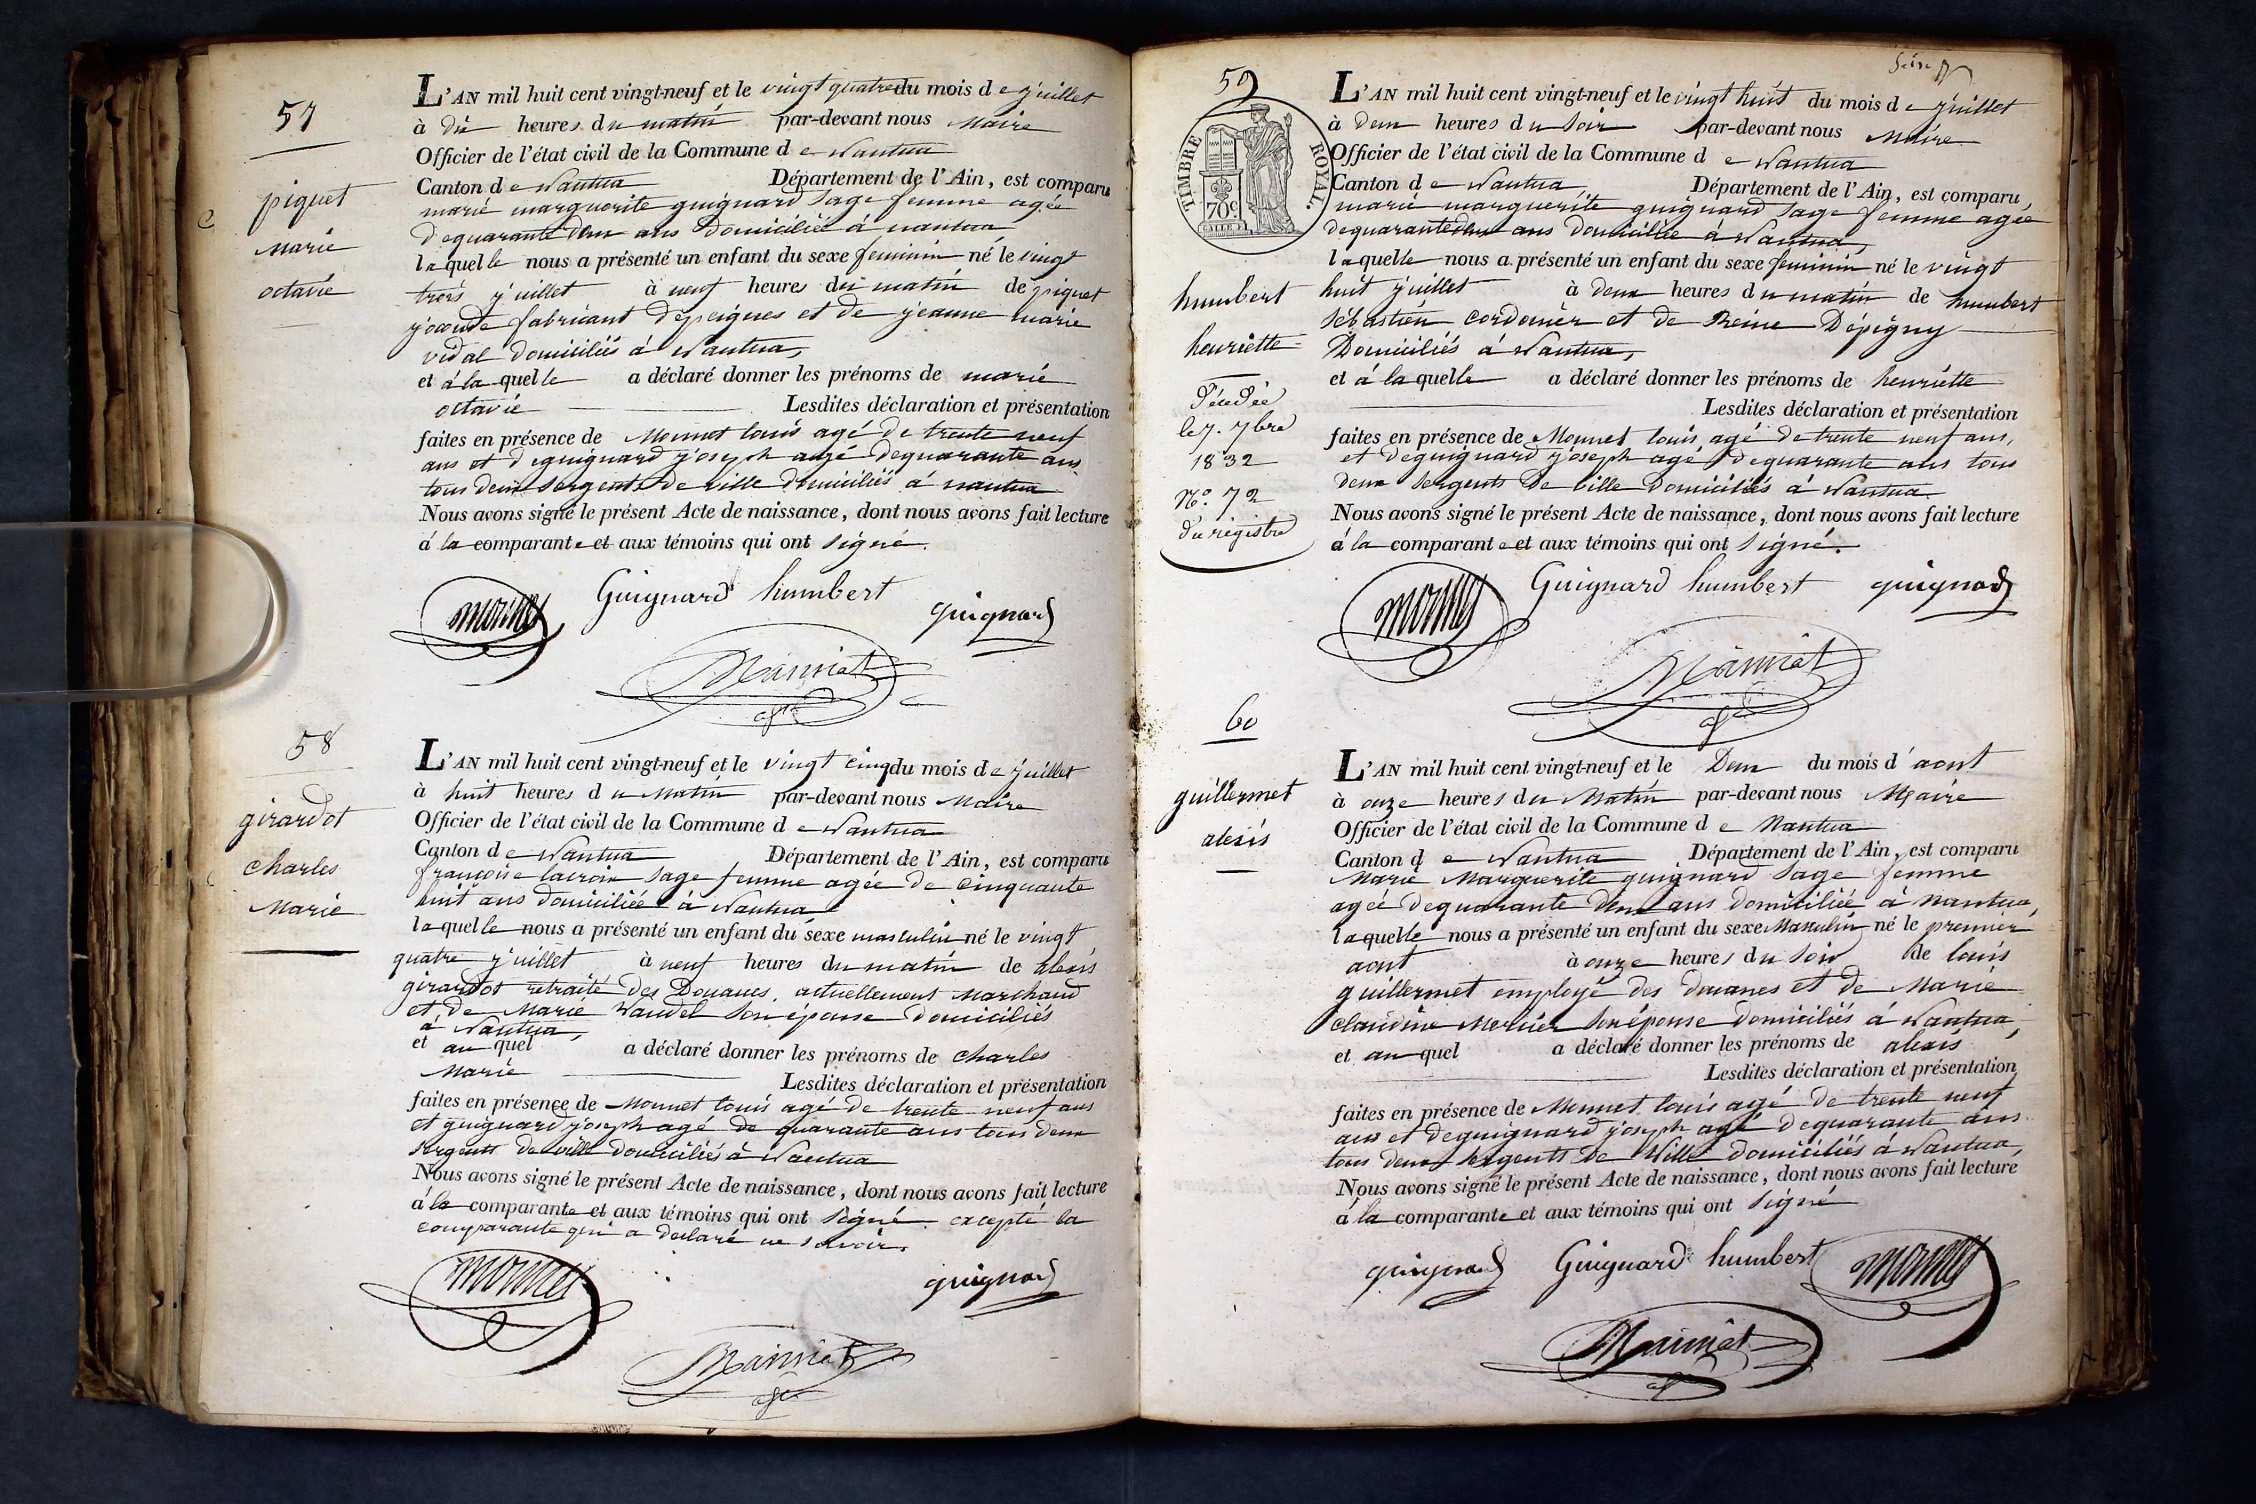 57
piquet
marie
octavie
L'AN mil huit cent vingt-neuf et le vingt quatre du mois de juillet
à dix heures du matin par-devant nous Maire
Officier de l'état civil de la Commune de Nantua
Canton de Nantua Département de l'Ain, est comparu
marie marguerite guignard sage femme agée
de quarante deux ans domiciliée à nantua
laquelle nous a présenté un enfant du sexe feminin né le vingt
trois juillet à neuf heures du matin de piquet
joconde fabricant de peignes et de jeanne marie
vidal domiciliés à Nantua,
et à laquelle a déclaré donner les prénoms de marie
octavie Lesdites déclaration et présentation
faites en présence de Monnet louis agé de trente neuf
ans et de guignard joseph agé de quarante ans
tous deux sergents de ville domiciliés à nantua
Nous avons signé le présent Acte de naissance, dont nous avons fait lecture
à la comparante et aux témoins qui ont signé.
monnet Guignard humbert guignard
58
girardot
charles
Marie
L'AN mil huit cent vingt-neuf et le vingt cinq du mois de juillet
à huit heures du Matin par-devant nous Maire
Officier de l'état civil de la Commune de Nantua
Canton de Nantua Département de l'Ain, est comparu
françoise lacroix sage femme agée de cinquante
huit ans domiciliée à Nantua
laquelle nous a présenté un enfant du sexe masculin né le vingt
quatre juillet à neuf heures du matin de alexis
girardot retraité des Douanes, actuellement Marchand
et de Marie Vaudel son épouse domiciliés
à Nantua,
et au quel a déclaré donner les prénoms de charles
Marie Lesdites déclaration et présentation
faites en présence de Monnet louis agé de trente neuf ans
et guignard joseph agé de quarante ans tous deux
sergents de ville domiciliés à Nantua
Nous avons signé le présent Acte de naissance, dont nous avons fait lecture
à la comparante et aux témoins qui ont signé. excepté la
comparante qui a declaré ne savoir.
monnet guignard
59
TIMBRE ROYAL.
70c
humbert
henriette
Décédée
le 7. 7bre
1832
No. 72
du registre
L'AN mil huit cent vingt-neuf et le vingt huit du mois de juillet
à deux heures du soir par-devant nous Maire
Officier de l'état civil de la Commune de Nantua
Canton de Nantua, Département de l'Ain, est comparu
marie marguerite guignard sage femme agée
de quarante deux ans domiciliée à Nantua,
laquelle nous a présenté un enfant du sexe feminin né le vingt
huit juillet à deux heures du matin de humbert
sébastien cordonier et de Reine Dépigny
Domiciliés à Nantua,
et à laquelle a déclaré donner les prénoms de henriette
Lesdites déclaration et présentation
faites en présence de Monnet louis agé de trente neuf ans,
et de guignard joseph agé de quarante ans tous
deux sergents de Ville domiciliés à Nantua.
Nous avons signé le présent Acte de naissance, dont nous avons fait lecture
à la comparante et aux témoins qui ont signé.
monnet Guignard humbert guignard
60
guillermet
alexis
L'AN mil huit cent vingt-neuf et le Deux du mois d'aout
à onze heures du Matin par-devant nous Maire
Officier de l'état civil de la Commune de Nantua
Canton de Nantua Département de l'Ain, est comparu
Marie Marguerite guignard sage femme
agée de quarante deux ans domiciliée à Nantua,
laquelle nous a présenté un enfant du sexe Masculin né le premier
aout à onze heures du soir de louis
guillermet employé des douanes et de Marie
claudine Mercier son épouse domiciliés à Nantua,
et au quel a déclaré donner les prénoms de alexis
Lesdites déclaration et présentation
faites en présence de Monnet louis agé de trente neuf
ans et de guignard joseph agé de quarante ans
tous deux sergents de Ville domiciliés à Nantua,
Nous avons signé le présent Acte de naissance, dont nous avons fait lecture
à la comparante et aux témoins qui ont signé
guignard Guignard humbert monnet